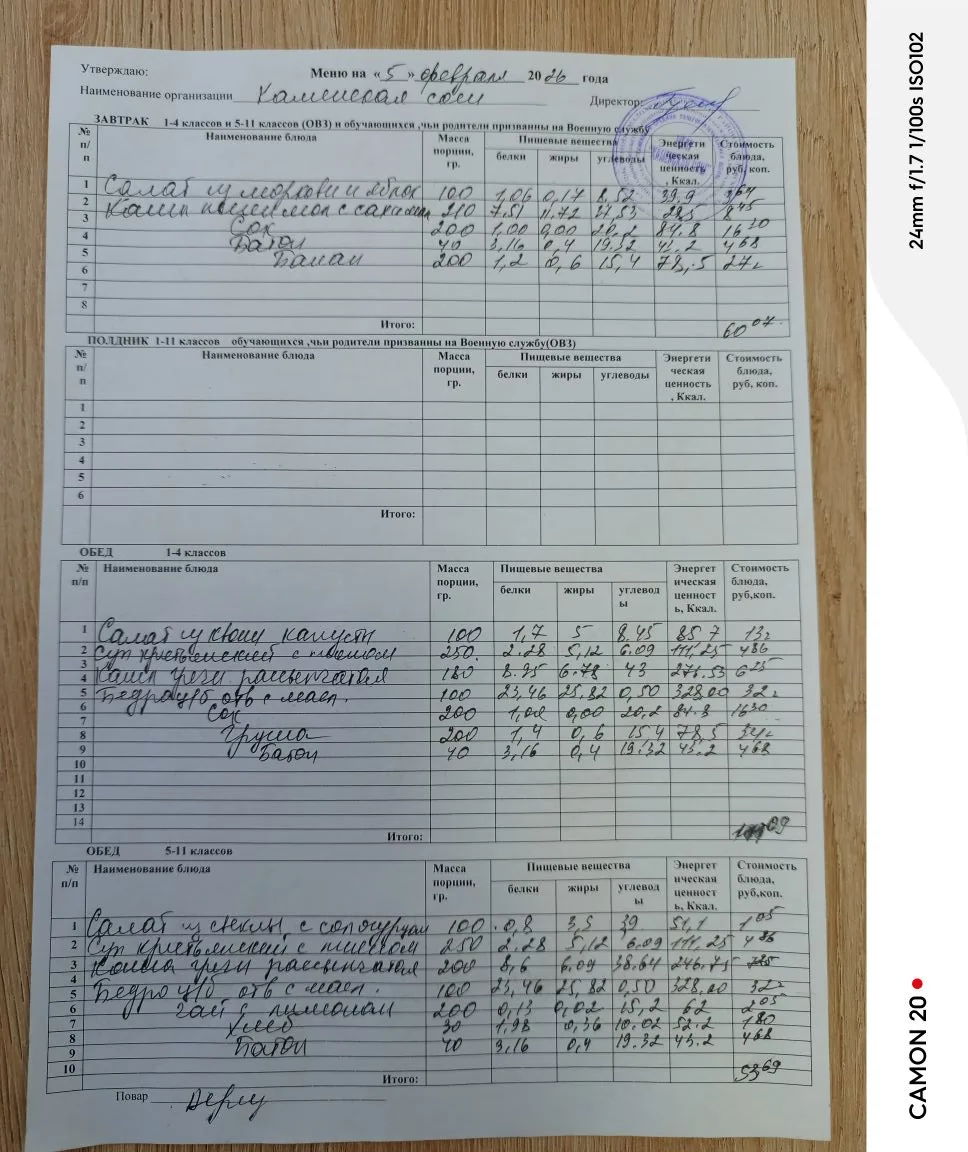 Утверждаю: Меню на «5» февраля 2026 года
Наименование организации Каменская сош Директор:
ЗАВТРАК 1-4 классов и 5-11 классов (ОВЗ) и обучающихся ,чьи родители призванны на Военную службу
№ п/п Наименование блюда Масса порции, гр. Пищевые вещества Энергетическая ценность, Ккал. Стоимость блюда, руб, коп.
белки жиры углеводы
1 Салат из моркови и яблок 100 1,06 0,17 8,52 39,9 3 64
2 Каша пшен мол с сахаром 210 7,51 11.72
3 Сок 200 1,00 0,00 20,2 84.8 16 30
4 Батон 40 3,16 0,4 19.32 4 68
5 Банан 200 1,2 0,6 15,4 78,5 27
6
7
8
Итого: 60 07
ПОЛДНИК 1-11 классов обучающихся ,чьи родители призванны на Военную службу(ОВЗ)
№ п/п Наименование блюда Масса порции, гр. Пищевые вещества Энергетическая ценность, Ккал. Стоимость блюда, руб, коп.
белки жиры углеводы
1
2
3
4
5
6
Итого:
ОБЕД 1-4 классов
№ п/п Наименование блюда Масса порции, гр. Пищевые вещества Энергетическая ценность, Ккал. Стоимость блюда, руб,коп.
белки жиры углеводы
1 Салат из квош капусты 100 1,7 5 8.45 85.7
2 Суп крестьянский с пшеном 250 2.28 5,12 6.09 111,25 4 86
3 Каша греч рассыпчатая 180 6.78 43 6 25
4 Бедро ц/б отв с масл. 100 23,46 25,82 0,50 328,00 32
5 Сок 200 0,00 20,2 84.8 16 30
6 Груша 200 1,4 0,6 15,4 78,5
7 Батон 40 3,16 0,4 19.32 43.2 4 68
8
9
10
11
12
13
14
Итого: 09
ОБЕД 5-11 классов
№ п/п Наименование блюда Масса порции, гр. Пищевые вещества Энергетическая ценность, Ккал. Стоимость блюда, руб,коп.
белки жиры углеводы
1 Салат из свеклы с сологурцом 100 0,8 3,5 39 51,1 1 05
2 Суп крестьянский с пшеном 250 2.28 5,12 6.09 111,25 4 86
3 Каша греч рассыпчатая 200 8,6 6.09 38.64 246.75 7 25
4 Бедро ц/б отв с масл. 100 23,46 25,82 0,50 328,00 32
5 Чай с лимоном 200 0,13 0,02 15,2 62 2 05
6 Хлеб 30 1,98 0,36 10.02 52.2 1 80
7 Батон 40 3,16 0,4 19.32 43.2 4 68
8
9
10
Итого: 53 69
Повар
24mm f/1.7 1/100s ISO102
CAMON 20